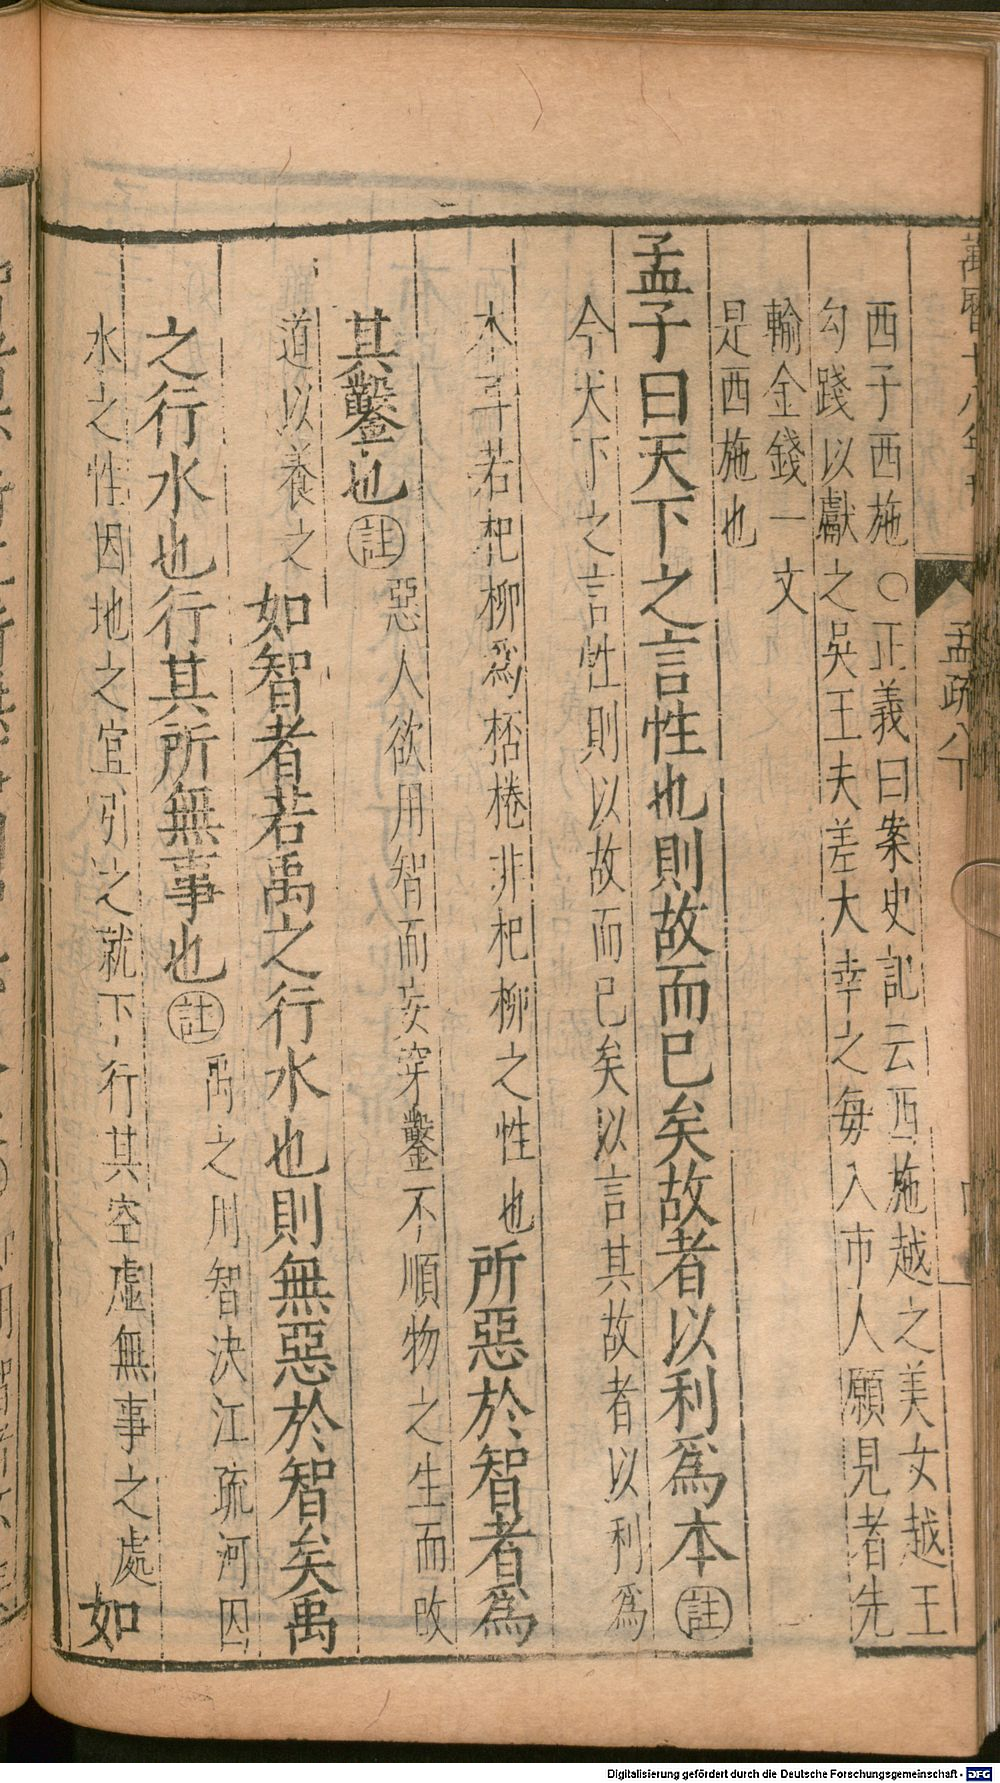 孟疏八下
西子西施○正義曰案史記云西施越之美女越王
勾踐以獻之吳王夫差大幸之每入市人願見者先
輸金錢一文
是西施也
孟子曰天下之言性也則故而已矣故者以利爲本註
今天下之言性則以故而已矣以言其故者以利爲
本耳若杞柳爲桮棬非杞柳之性也所惡於智者爲
其鑿也註惡人欲用智而妄穿鑿不順物之生而改
道以養之如智者若禹之行水也則無惡於智矣禹
之行水也行其所無事也註禹之用智決江疏河因
水之性因地之宜引之就下行其空虛無事之處如
Digitalisierung gefördert durch die Deutsche Forschungsgemeinschaft - DFG